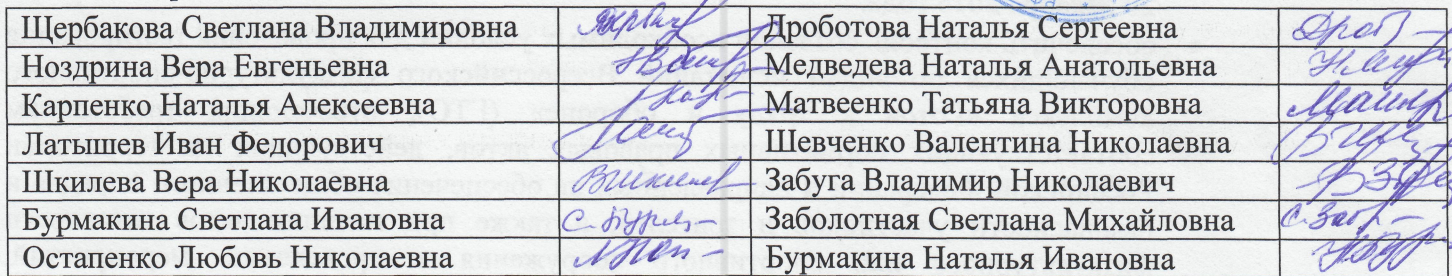 Щербакова Светлана Владимировна Дроботова Наталья Сергеевна
Ноздрина Вера Евгеньевна Медведева Наталья Анатольевна
Карпенко Наталья Алексеевна Матвеенко Татьяна Викторовна
Латышев Иван Федорович Шевченко Валентина Николаевна
Шкилева Вера Николаевна Забуга Владимир Николаевич
Бурмакина Светлана Ивановна Заболотная Светлана Михайловна
Остапенко Любовь Николаевна Бурмакина Наталья Ивановна